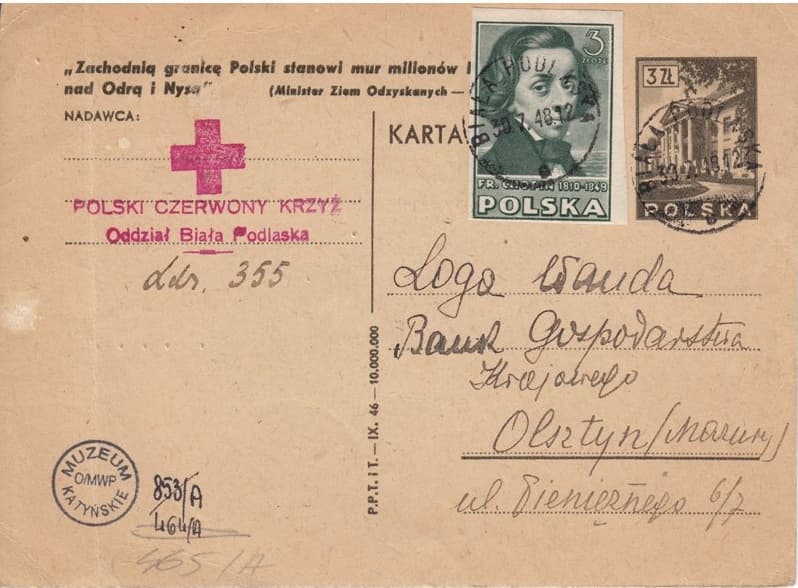 „Zachodnią granicę Polski stanowi mur milionów
nad Odrą i Nysą" (Minister Ziem Odzyskanych —
NADAWCA:
POLSKI CZERWONY KRZYŻ
Oddział Biała Podlaska
Ldz. 355
MUZEUM
O/MWP
KATYŃSKIE
853/A
464/A
465/A
P.P.T. i T. — IX. 46 — 10.000.000
KARTA
3
ZŁOTE
FR. CHOPIN 1810-1849
POLSKA
BIAŁA PODLASKA
30.7.48.12
3 ZŁ
POLSKA
BIAŁA PODLASKA
30.7.48.12
Loga Wanda
Bank Gospodarstwa
Krajowego
Olsztyn/Mazury/
ul. Pieniężnego 6/7